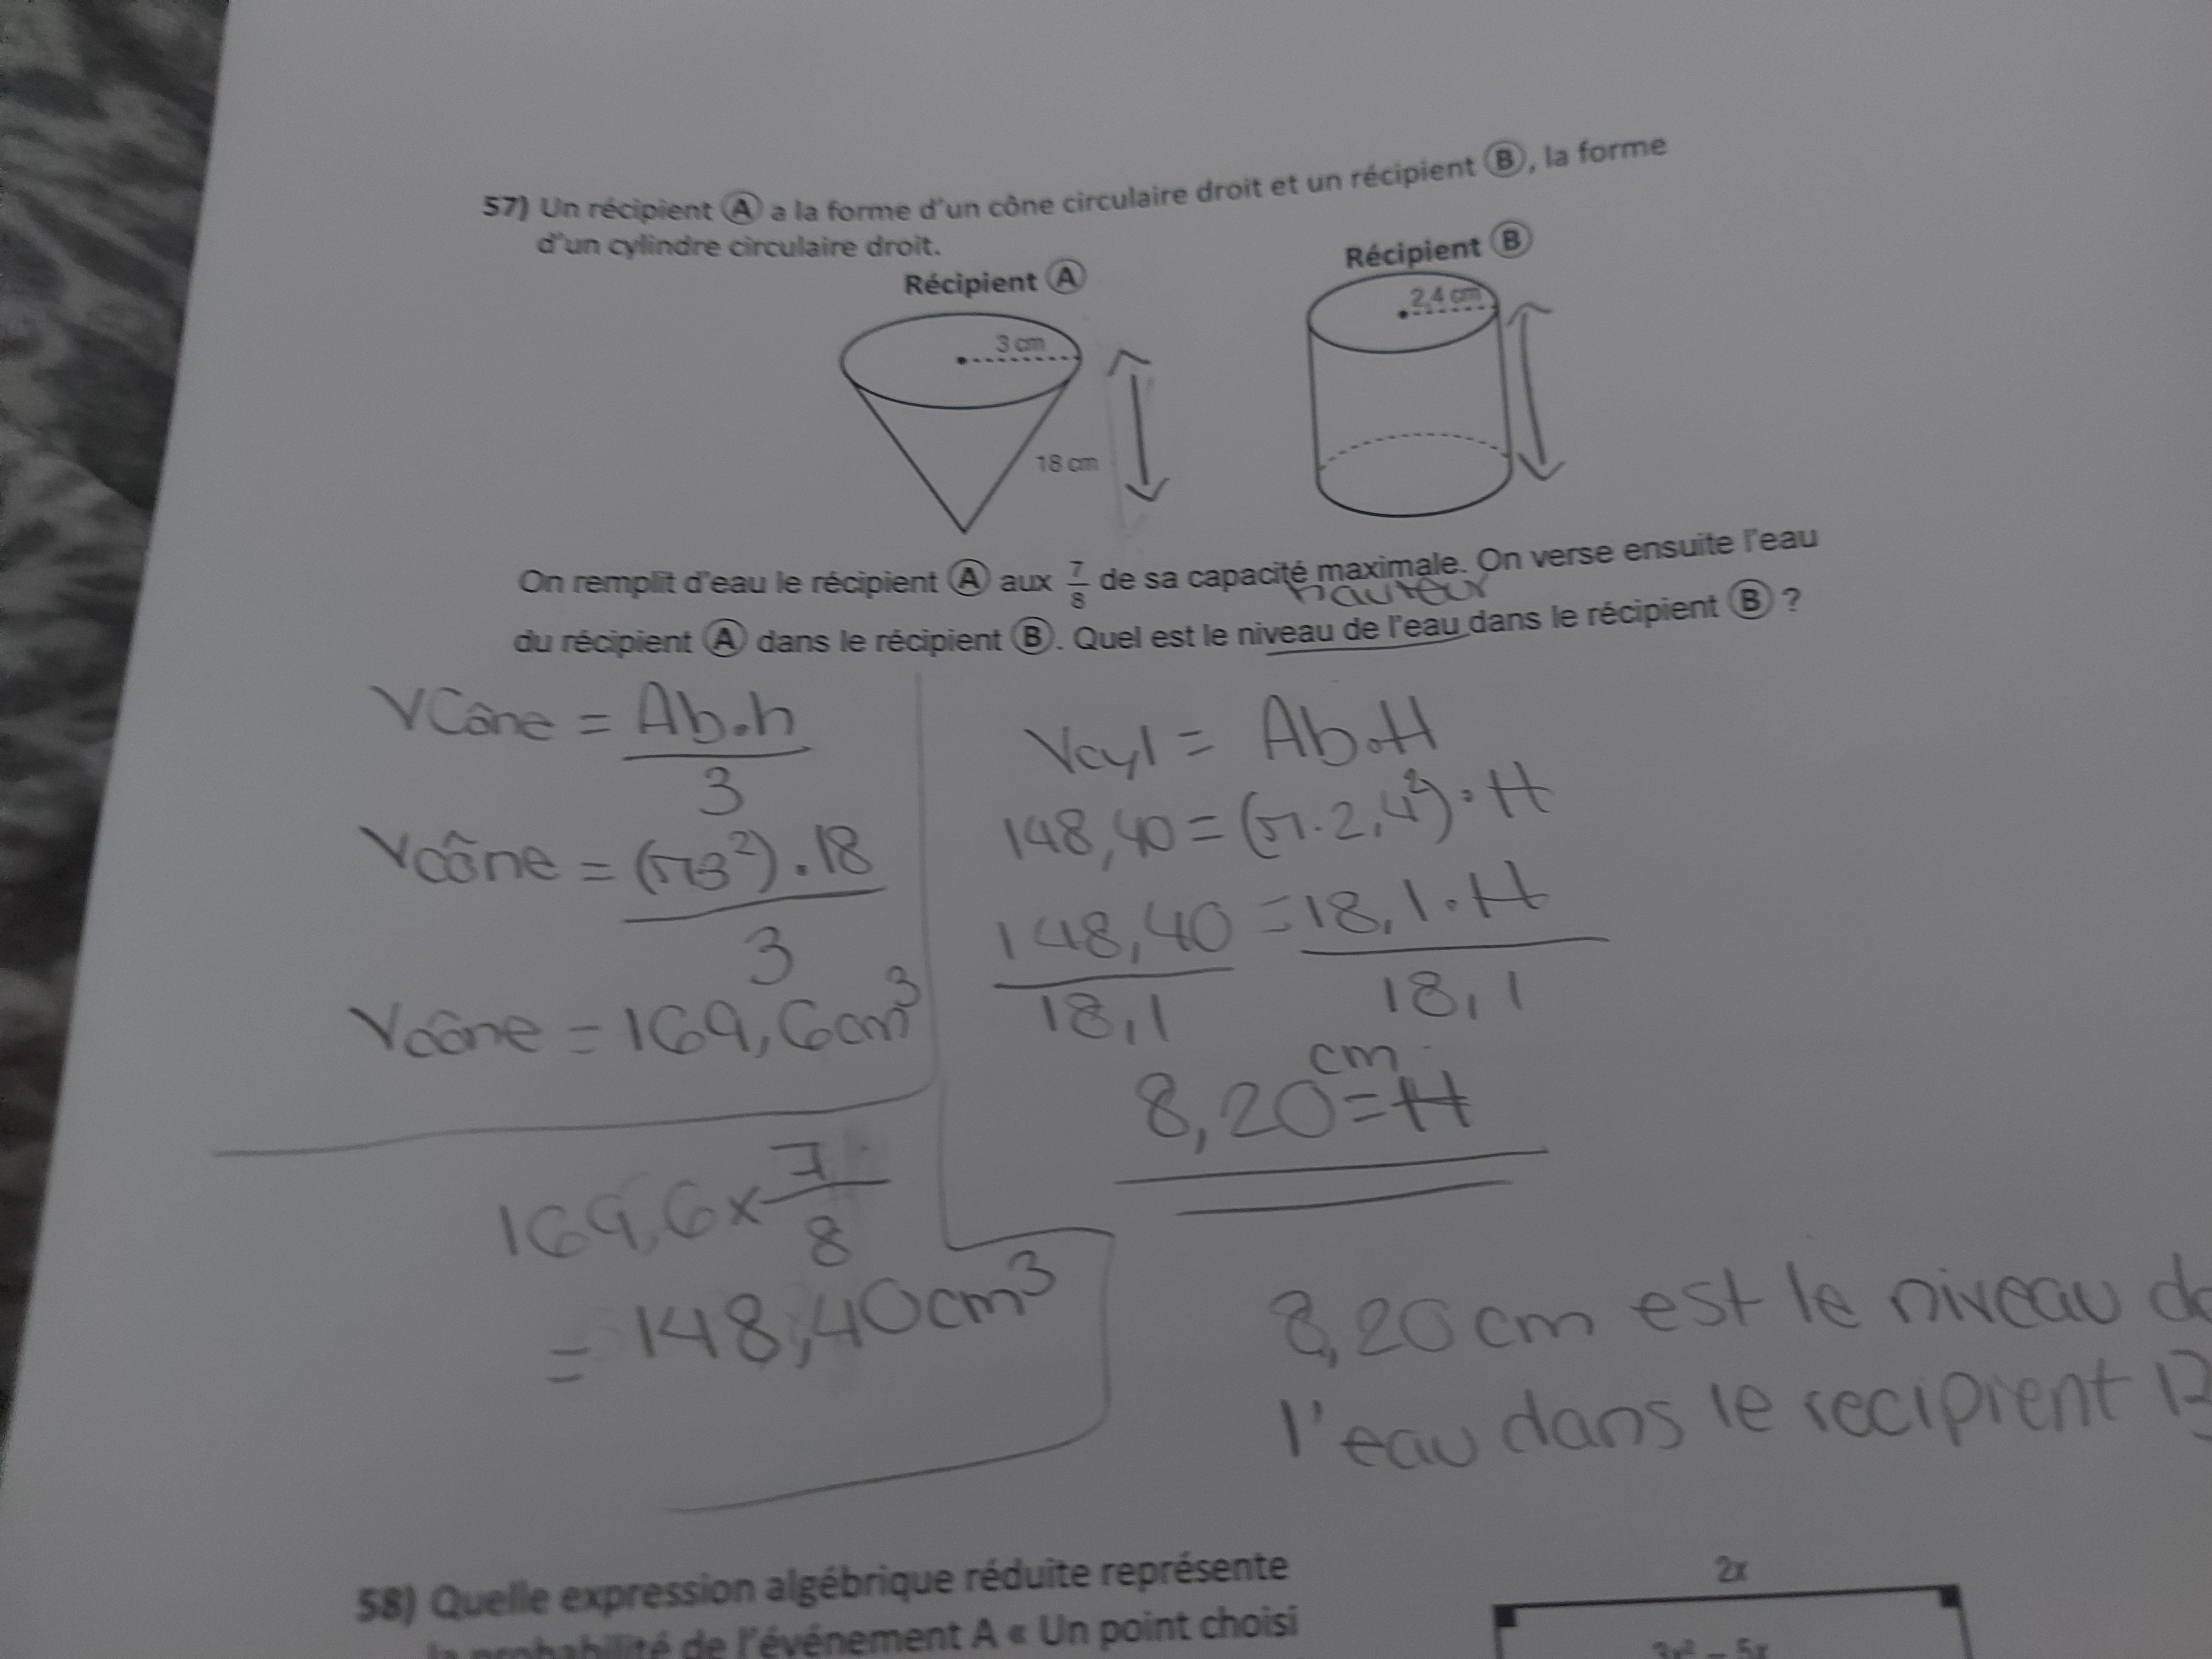 57) Un récipient Ⓐ a la forme d'un cône circulaire droit et un récipient Ⓑ, la forme
d'un cylindre circulaire droit.
Récipient Ⓐ
Récipient Ⓑ
3 cm
2,4 cm
18 cm
On remplit d'eau le récipient Ⓐ aux 7/8 de sa capacité maximale. On verse ensuite l'eau
hauteur
du récipient Ⓐ dans le récipient Ⓑ. Quel est le niveau de l'eau dans le récipient Ⓑ ?
VCône = Ab.h / 3
Vcône = (π3²).18 / 3
Vcône = 169,6cm³
169,6 x 7/8
= 148,40cm³
Vcyl = Ab.H
148,40 = (π.2,4²).H
148,40 / 18,1 = 18,1.H / 18,1
8,20 cm = H
8,20cm est le niveau
l'eau dans le recipient B
58) Quelle expression algébrique réduite représente
la probabilité de l'événement A « Un point choisi
2x
3x² – 5x